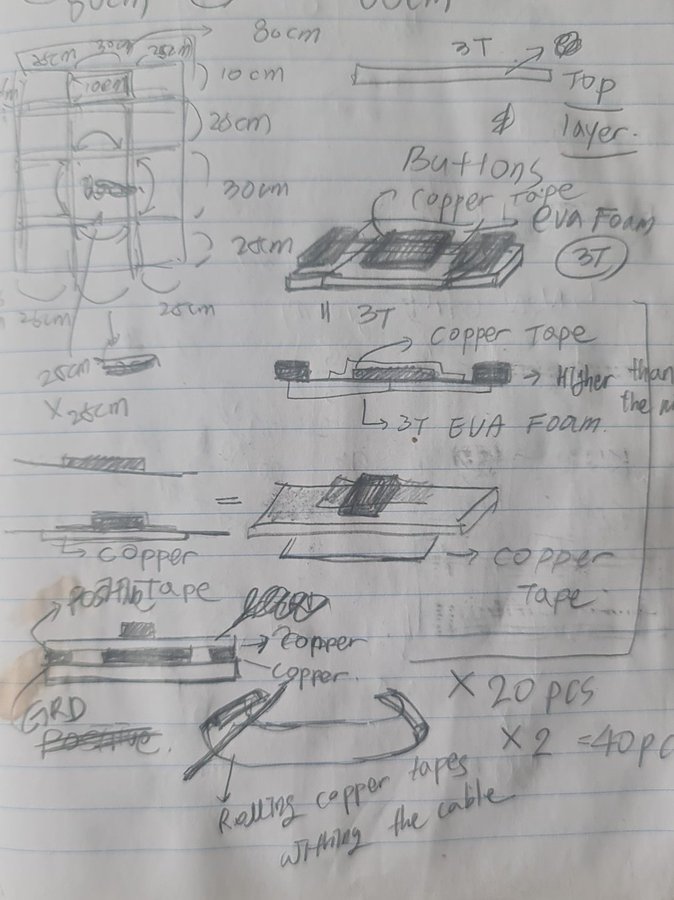 80cm
80cm
25cm 30cm 25cm
80cm
10cm
10cm
25cm
30cm
25cm
25cm
25cm
25cm
X 25cm
3T
Top
layer.
Buttons
copper Tape
eva Foam
3T
3T
copper Tape
Higher than
the
3T EVA Foam.
=
copper
Tape
copper
Tape
Positive
copper
copper.
GRD
Positive.
X 20 pcs
X 2 = 40 pc
Rolling copper tapes
withing the cable.